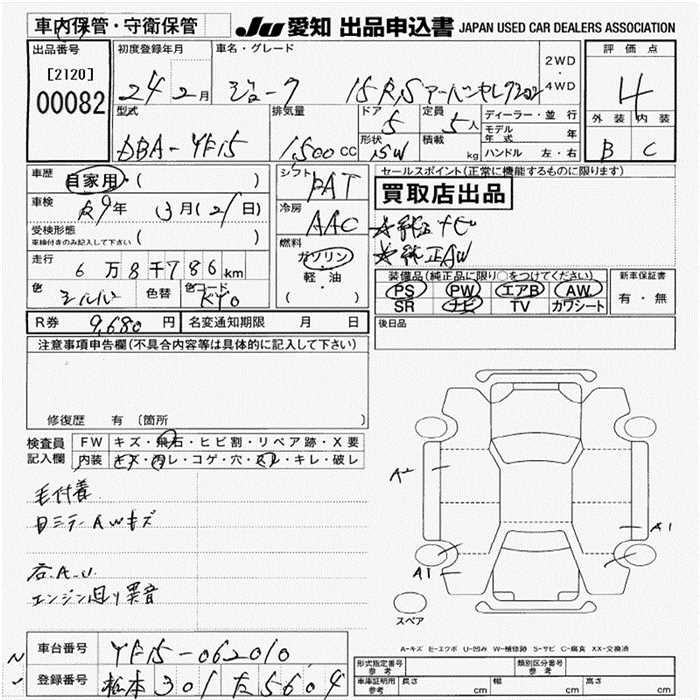 車内保管・守衛保管
JU 愛知 出品申込書 JAPAN USED CAR DEALERS ASSOCIATION
出品番号
[2120]
00082
初度登録年月
24 2月
車名・グレード
ジューク 15RS アーバンセレクション
2WD
・
4WD
評価点
4
外装 内装
B C
型式
DBA-YF15
排気量
1,500cc
ドア
5
形状
SW
定員
5人
積載
kg
ディーラー・並行
モデル年式 年
ハンドル 左・右
車歴
自家用・( )
車検
R9年 3月(21日)
受検形態
車検付きのみ記入して下さい ( )
走行
6万8千786km
色
シルバー
色替
色コード
KY0
シフト
FAT
冷房
AAC
燃料
ガソリン・
軽・油
( )
セールスポイント(正常に機能するものに限ります)
買取店出品
★純正ナビ
★純正AW
装備品(純正品に限り○をつけてください)
PS PW エアB AW
SR ナビ TV カワシート
新車保証書
有・無
R券 9,680円
名変通知期限 月 日
後日品
注意事項申告欄(不具合内容等は具体的に記入して下さい)
修復歴 有 (箇所 )
検査員記入欄
FW キズ・飛石・ヒビ割・リペア跡・X要
内装 キズ・汚レ・コゲ・穴・スレ・キレ・破レ
毛付着
目ミラーAWキズ
右A.U.
エンジン回り異音
A2
A1
A1
スペア
A-キズ E-エクボ U-凹み W-補修跡 S-サビ C-腐食 XX-交換済
車台番号
YF15-062010
登録番号
松本301た5604
型式指定番号
参考
類別区分番号
参考
車庫証明用
参考
長さ cm
幅 cm
高さ cm